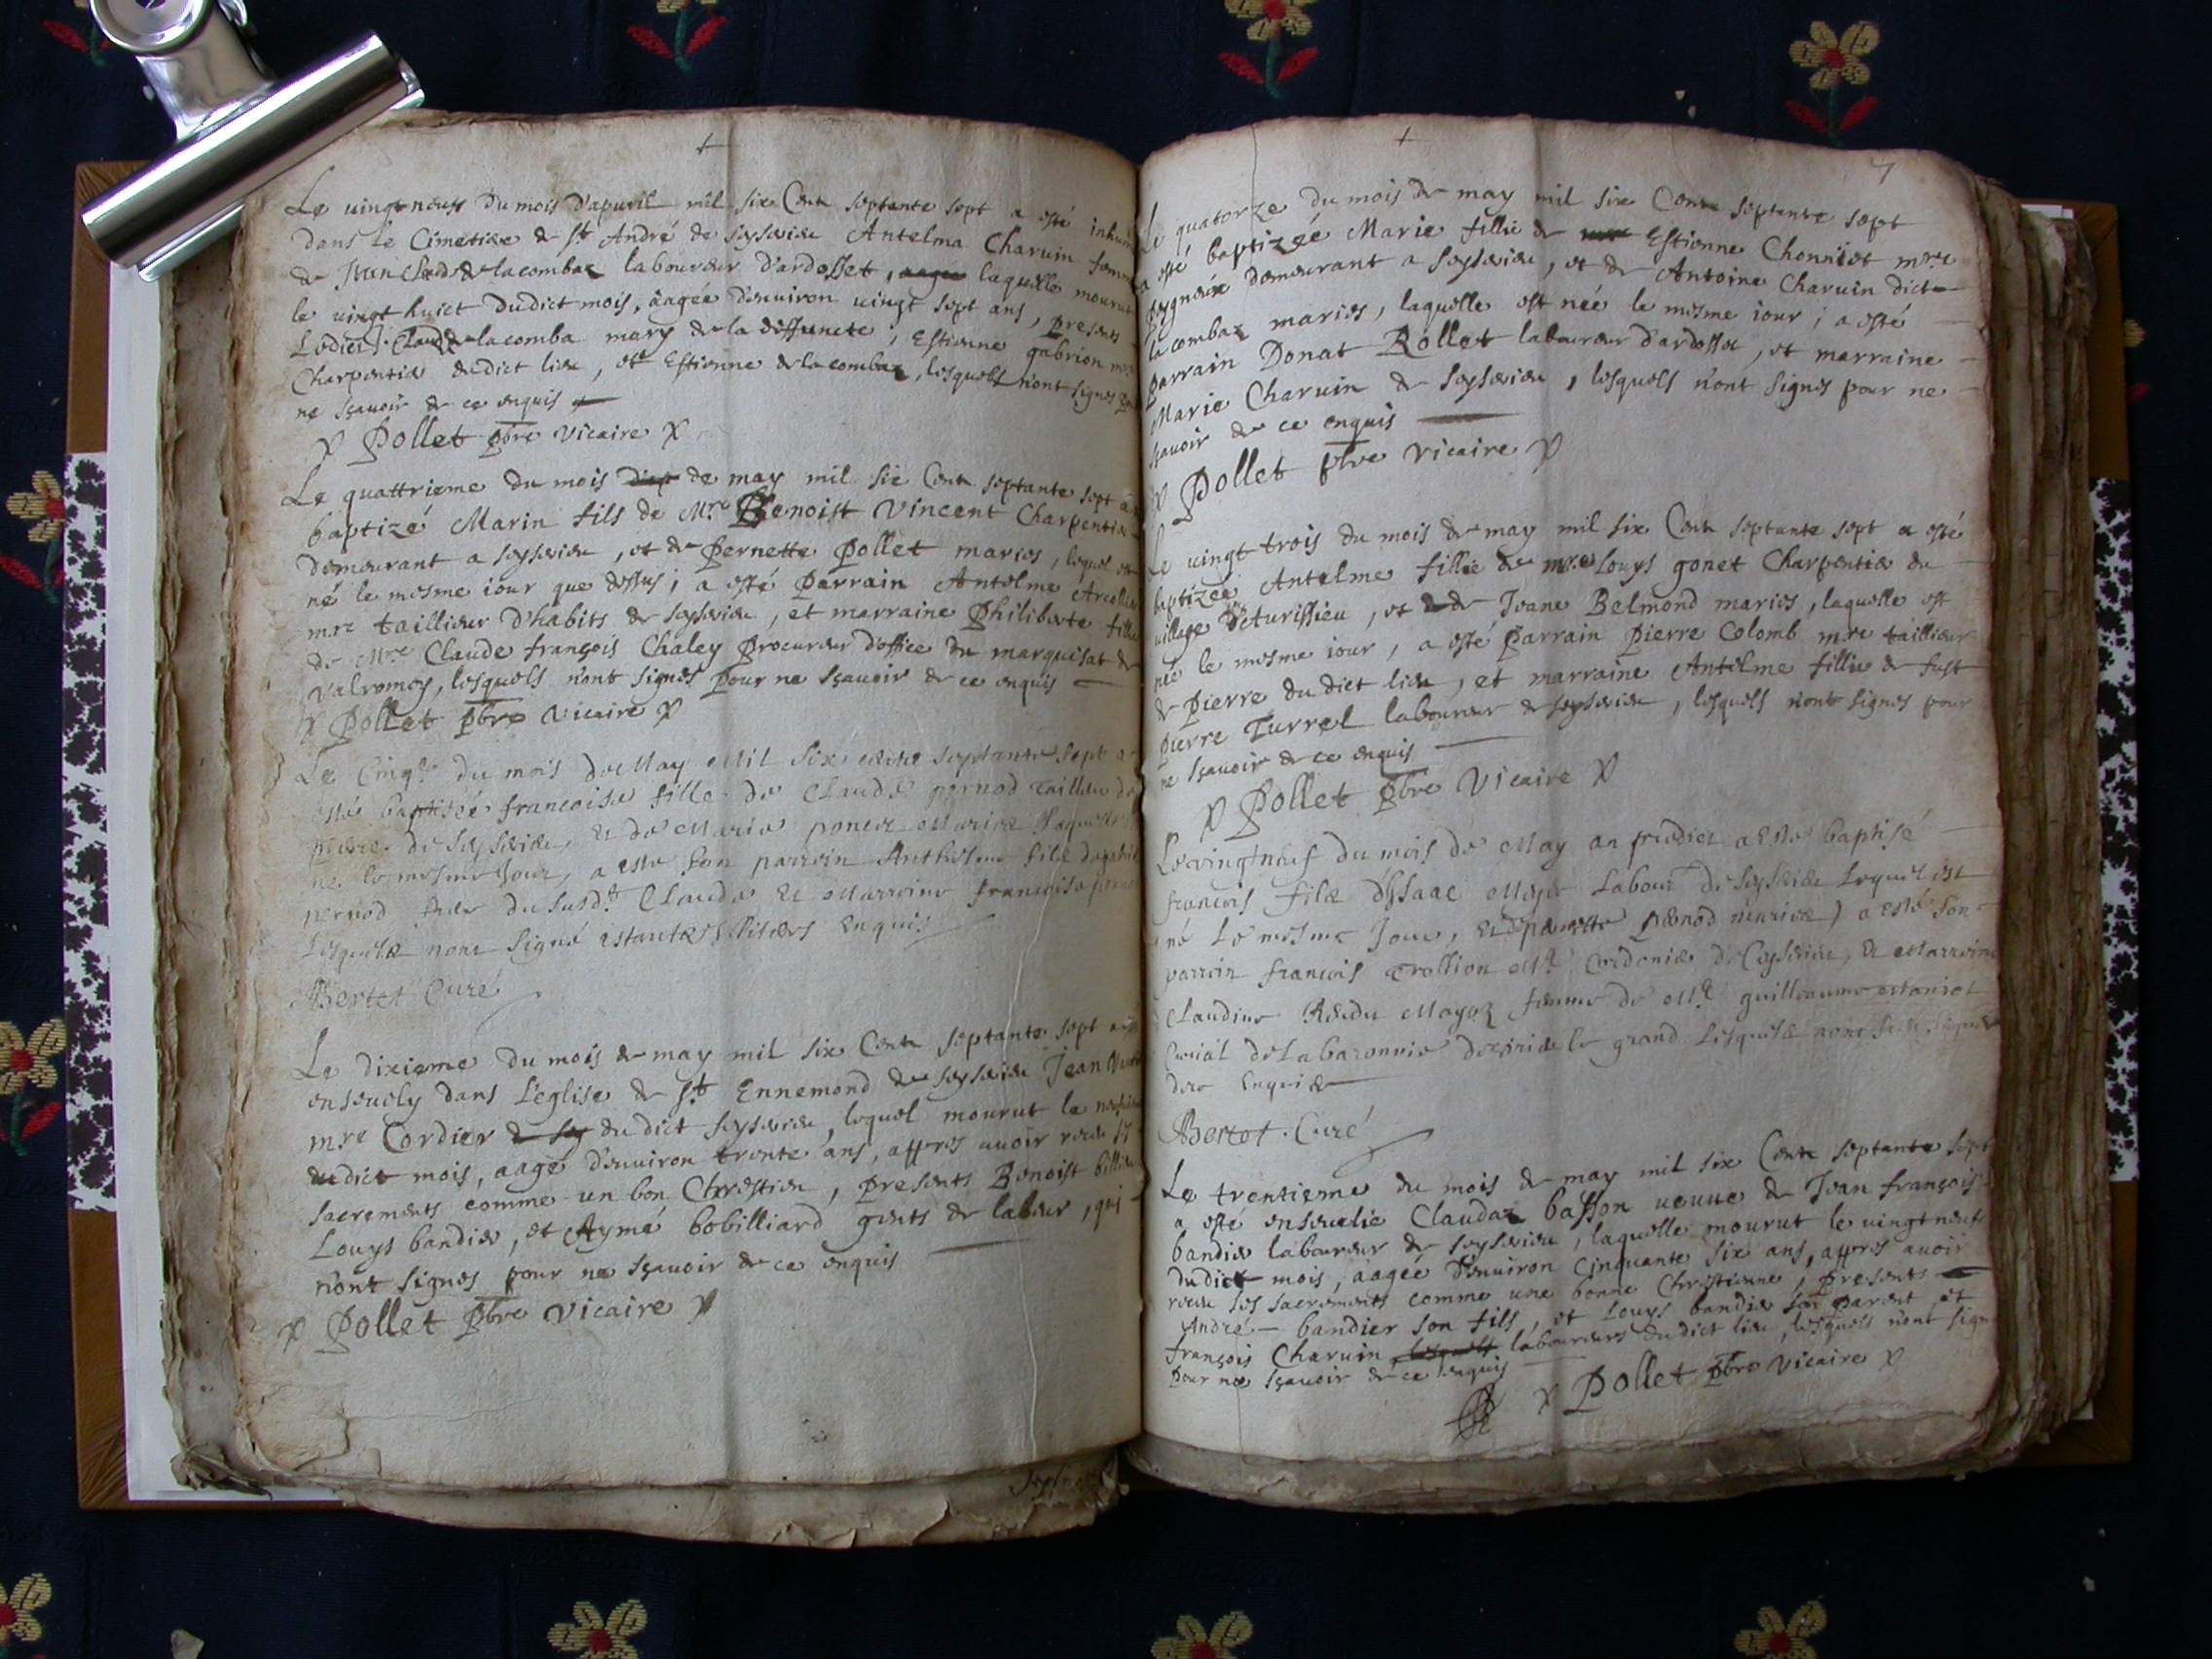 Le vingt neuf du mois d'apuril mil six Cent septante sept a esté inhum
dans le Cimetiere de St André de seysserieu Antelma Charuin femme
de Jean Claude delacombaz laboureur d'ardosset, laquelle mourut
le vingt huict dudict mois, aagée d'enuiron vingt sept ans, presents
Ledict J. Claude delacomba mary de la deffuncte, Estienne gabrion mre
Charpentier dudict lieu, et Estienne delacombaz, lesquels n'ont signes
ne sçauoir de ce enquis
Pollet pbre vicaire
Le quattrieme du mois de may mil six Cent septante sept a
baptizé Marin fils de Mre Benoist Vincent Charpentier
demeurant a seysserieu, et de Pernette Pollet maries, lequel est
né le mesme iour que dessus; a esté parrain Antelme
mre taillieur d'habits de seysserieu, et marraine Philiberte fille
de Mre Claude françois Chaley Procureur d'office du marquisat de
Valromey, lesquels n'ont signes pour ne sçauoir de ce enquis
Pollet pbre vicaire
Le Cinqe du mois de May Mil six cents septante sept a
esté baptisée francoise fille de Claude pernod Tailleur de
pierre de seysserieu, et de Marie laquelle
née le mesme Jour, a esté son parrain Anthelme filz
pernod frere du susdt Claude et Marraine francoise
Lesquelz nont signé estantz illiterés enquis
Bertet Curé
Le dixieme du mois de may mil six Cent septante sept
enseuely dans l'église de St Ennemond de seysserieu Jean
mre Cordier dudict seysserieu, lequel mourut le
dudict mois, aagé d'enuiron trente ans, appres auoir receu
sacrements comme un bon Chrestien, presents Benoist
Louys bandier, et Aymé bobilliard gents de labeur, qui
n'ont signes pour ne sçauoir de ce enquis
Pollet pbre vicaire
7
Le quatorze du mois de may mil six Cent septante sept
a esté baptizée Marie fillie de Estienne mre
peygneur demeurant a seysserieu, et de Antoine Charuin dict
la combaz maries, laquelle est née le mesme iour; a esté
parrain Donat Rollet laboureur d'ardosset, et marraine
Marie Charuin de seysserieu, lesquels n'ont signes pour ne
sçauoir de ce enquis
Pollet pbre vicaire
Le vingt trois du mois de may mil six Cent septante sept a esté
baptizée Antelme fillie de mre Louys gonet Charpentier du
village de turissieu, et de Jeane Belmond maries, laquelle est
née le mesme iour, a esté parrain pierre Colomb mre taillieur
de pierre du dict lieu, et marraine Antelme fillie de fust
pierre Turrel laboureur de seysserieu, lesquels n'ont signes pour
ne sçauoir de ce enquis
Pollet pbre vicaire
Le vingtneuf du mois de May an predict a Esté baptisé
francois filz d'Isaac Labour de seysserieu Lequel est
né Le mesme Jour, et pernette pernod mariez) a esté son
parrein francois Trollion Me Cordonier de Ceysserieu, et Marraine
Claudine femme de Me guillaume
de La baronnie le grand Lesquelz nont
Enquis
Bertet Curé
Le trentieme du mois de may mil six Cent septante sept
a esté enseuelie Claudaz basson veuue de Jean françois
bandier laboureur de seysserieu, laquelle mourut le vingt neuf
dudict mois, aagée d'enuiron cinquante six ans, appres auoir
receu ses sacrements comme une bonne Chrestienne, presents
André bandier son fils, et Louys bandier son parent, et
françois Charuin laboureurs dudict lieu, lesquels n'ont sign
pour ne sçauoir de ce enquis
Pollet pbre vicaire